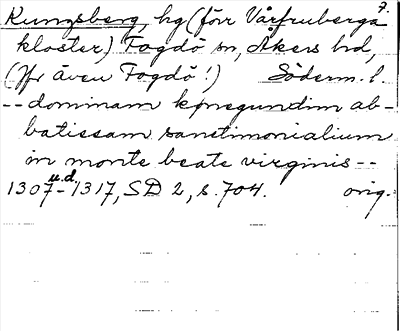 7.
Kungsberg, hg (förr Vårfruberga
kloster) Fogdö sn, Åkers hd,
(Jfr även Fogdö!) Söderm. l.
-- dominam kønegundim ab-
batissam sanctimonialium
in monte beate virginis --
1307 u.d. - 1317, SD 2, s. 704. orig.